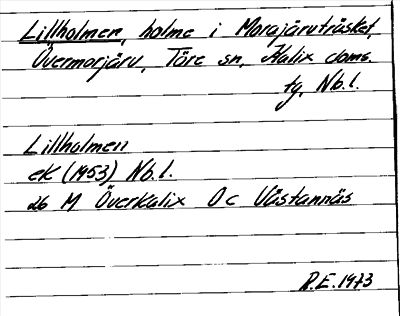 Lillholmen, holme i Morajärvträsket,
Övermorjärv, Töre sn, Kalix doms.
tg, Nb.l.
Lillholmen
ek (1953) Nb.l.
26 M Överkalix Oc Västannäs
R.E. 1973